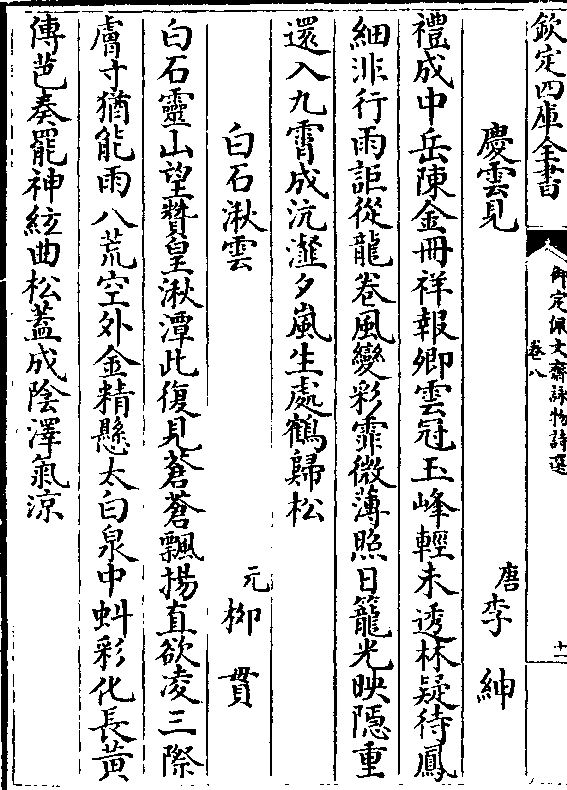 欽定四庫全書
御定佩文齋詠物詩選
卷八
十一
慶雲見
唐李紳
禮成中岳陳金冊祥報卿雲冠玉峰輕未透林疑待鳳
細非行雨詎從龍卷風變彩霏微薄照日籠光映隠重
還入九霄成沆瀣夕嵐生處鶴歸松
白石湫雲
元栁貫
白石靈山望贊皇湫潭此復見蒼蒼飄揚直欲凌三際
膚寸猶能雨八荒空外金精懸太白泉中虯彩化長黃
傳芭奏罷神絃曲松蓋成隂澤氣凉